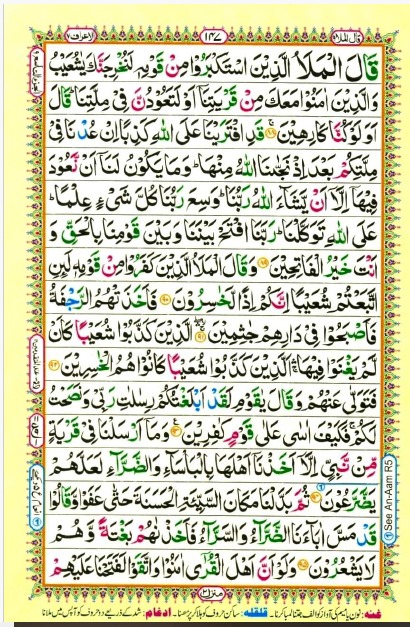 قال الملا۹ ۱۴۷ الاعراف۷
قَالَ الْمَلَاُ الَّذِيْنَ اسْتَكْبَرُوْا مِنْ قَوْمِهٖ لَنُخْرِجَنَّكَ يٰشُعَيْبُ
وَالَّذِيْنَ اٰمَنُوْا مَعَكَ مِنْ قَرْيَتِنَآ اَوْ لَتَعُوْدُنَّ فِيْ مِلَّتِنَا ؕ قَالَ
اَوَلَوْ كُنَّا كٰرِهِيْنَ ۞ قَدِ افْتَرَيْنَا عَلَى اللّٰهِ كَذِبًا اِنْ عُدْنَا فِيْ
مِلَّتِكُمْ بَعْدَ اِذْ نَجّٰىنَا اللّٰهُ مِنْهَا ؕ وَمَا يَكُوْنُ لَنَآ اَنْ نَّعُوْدَ
فِيْهَآ اِلَّآ اَنْ يَّشَآءَ اللّٰهُ رَبُّنَا ؕ وَسِعَ رَبُّنَا كُلَّ شَيْءٍ عِلْمًا ؕ
عَلَى اللّٰهِ تَوَكَّلْنَا ؕ رَبَّنَا افْتَحْ بَيْنَنَا وَبَيْنَ قَوْمِنَا بِالْحَقِّ وَ
اَنْتَ خَيْرُ الْفٰتِحِيْنَ ۸۹ وَقَالَ الْمَلَاُ الَّذِيْنَ كَفَرُوْا مِنْ قَوْمِهٖ لَئِنِ
اتَّبَعْتُمْ شُعَيْبًا اِنَّكُمْ اِذًا لَّخٰسِرُوْنَ ۹۰ فَاَخَذَتْهُمُ الرَّجْفَةُ
فَاَصْبَحُوْا فِيْ دَارِهِمْ جٰثِمِيْنَ ۹۱ الَّذِيْنَ كَذَّبُوْا شُعَيْبًا كَاَنْ
لَّمْ يَغْنَوْا فِيْهَا ۚ اَلَّذِيْنَ كَذَّبُوْا شُعَيْبًا كَانُوْا هُمُ الْخٰسِرِيْنَ ۹۲
فَتَوَلّٰى عَنْهُمْ وَقَالَ يٰقَوْمِ لَقَدْ اَبْلَغْتُكُمْ رِسٰلٰتِ رَبِّيْ وَنَصَحْتُ
لَكُمْ ۚ فَكَيْفَ اٰسٰى عَلٰى قَوْمٍ كٰفِرِيْنَ ۹۳ وَمَآ اَرْسَلْنَا فِيْ قَرْيَةٍ
مِّنْ نَّبِيٍّ اِلَّآ اَخَذْنَآ اَهْلَهَا بِالْبَاْسَآءِ وَالضَّرَّآءِ لَعَلَّهُمْ
يَضَّرَّعُوْنَ ۹۴ ثُمَّ بَدَّلْنَا مَكَانَ السَّيِّئَةِ الْحَسَنَةَ حَتّٰى عَفَوْا وَّقَالُوْا
قَدْ مَسَّ اٰبَآءَنَا الضَّرَّآءُ وَالسَّرَّآءُ فَاَخَذْنٰهُمْ بَغْتَةً وَّهُمْ
لَا يَشْعُرُوْنَ ۹۵ وَلَوْ اَنَّ اَهْلَ الْقُرٰٓى اٰمَنُوْا وَاتَّقَوْا لَفَتَحْنَا عَلَيْهِمْ
منزل۲
See An-Aam R5